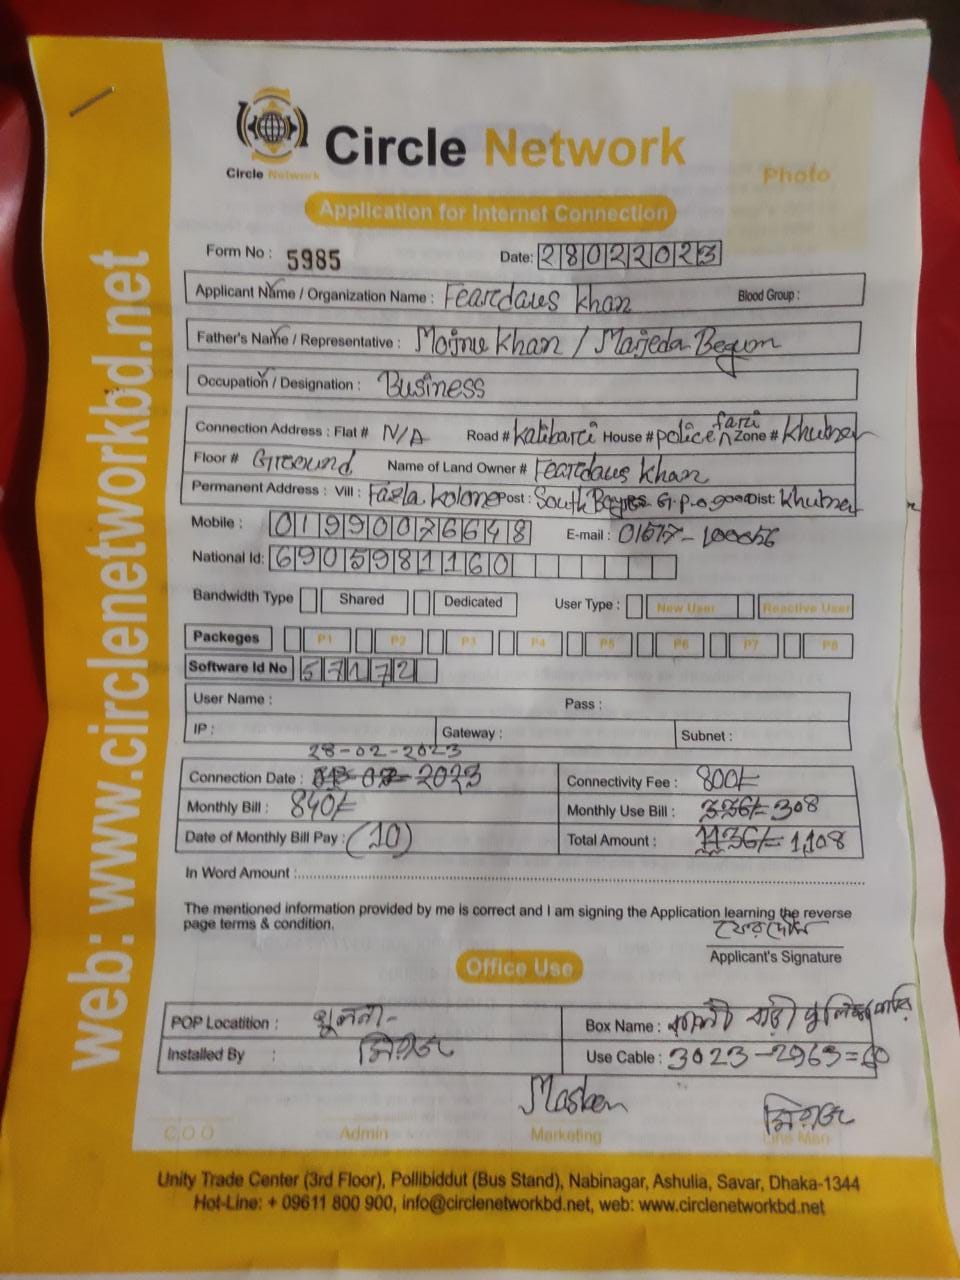 web: www.circlenetworkbd.net
Circle Network
Circle Network
Photo
Application for Internet Connection
Form No : 5985
Date: 28022023
Applicant Name / Organization Name : Feardaus Khan Blood Group :
Father's Name / Representative : Mojnu Khan / Marjeda Begum
Occupation / Designation : Business
Connection Address : Flat # N/A Road # Kalibari House # police fari Zone # Khulna
Floor # Ground Name of Land Owner # Feardaus Khan
Permanent Address : Vill : Post : South G.p.o 9000 Dist: Khulna
Mobile : 01990076648 E-mail : 01577-100056
National Id: 6905981160
Bandwidth Type Shared Dedicated User Type : New User Reactive User
Packeges P1 P2 P3 P4 P5 P6 P7 P8
Software Id No 57172
User Name : Pass :
IP : Gateway : Subnet :
28-02-2023
Connection Date : 2023 Connectivity Fee : 800/-
Monthly Bill : 840/- Monthly Use Bill : 336/= 308
Date of Monthly Bill Pay : (10) Total Amount : 1136/= 1,108
In Word Amount :
The mentioned information provided by me is correct and I am signing the Application learning the reverse
page terms & condition.
ফেরদৌস
Applicant's Signature
Office Use
POP Locatition : খুলনা- Box Name : কালী বাড়ী পুলিশ ফাড়ি
Installed By : মিরাজ Use Cable : 3023-2963=60
মিরাজ
C.O.O Admin Marketing Line Man
Unity Trade Center (3rd Floor), Pollibiddut (Bus Stand), Nabinagar, Ashulia, Savar, Dhaka-1344
Hot-Line: + 09611 800 900, info@circlenetworkbd.net, web: www.circlenetworkbd.net